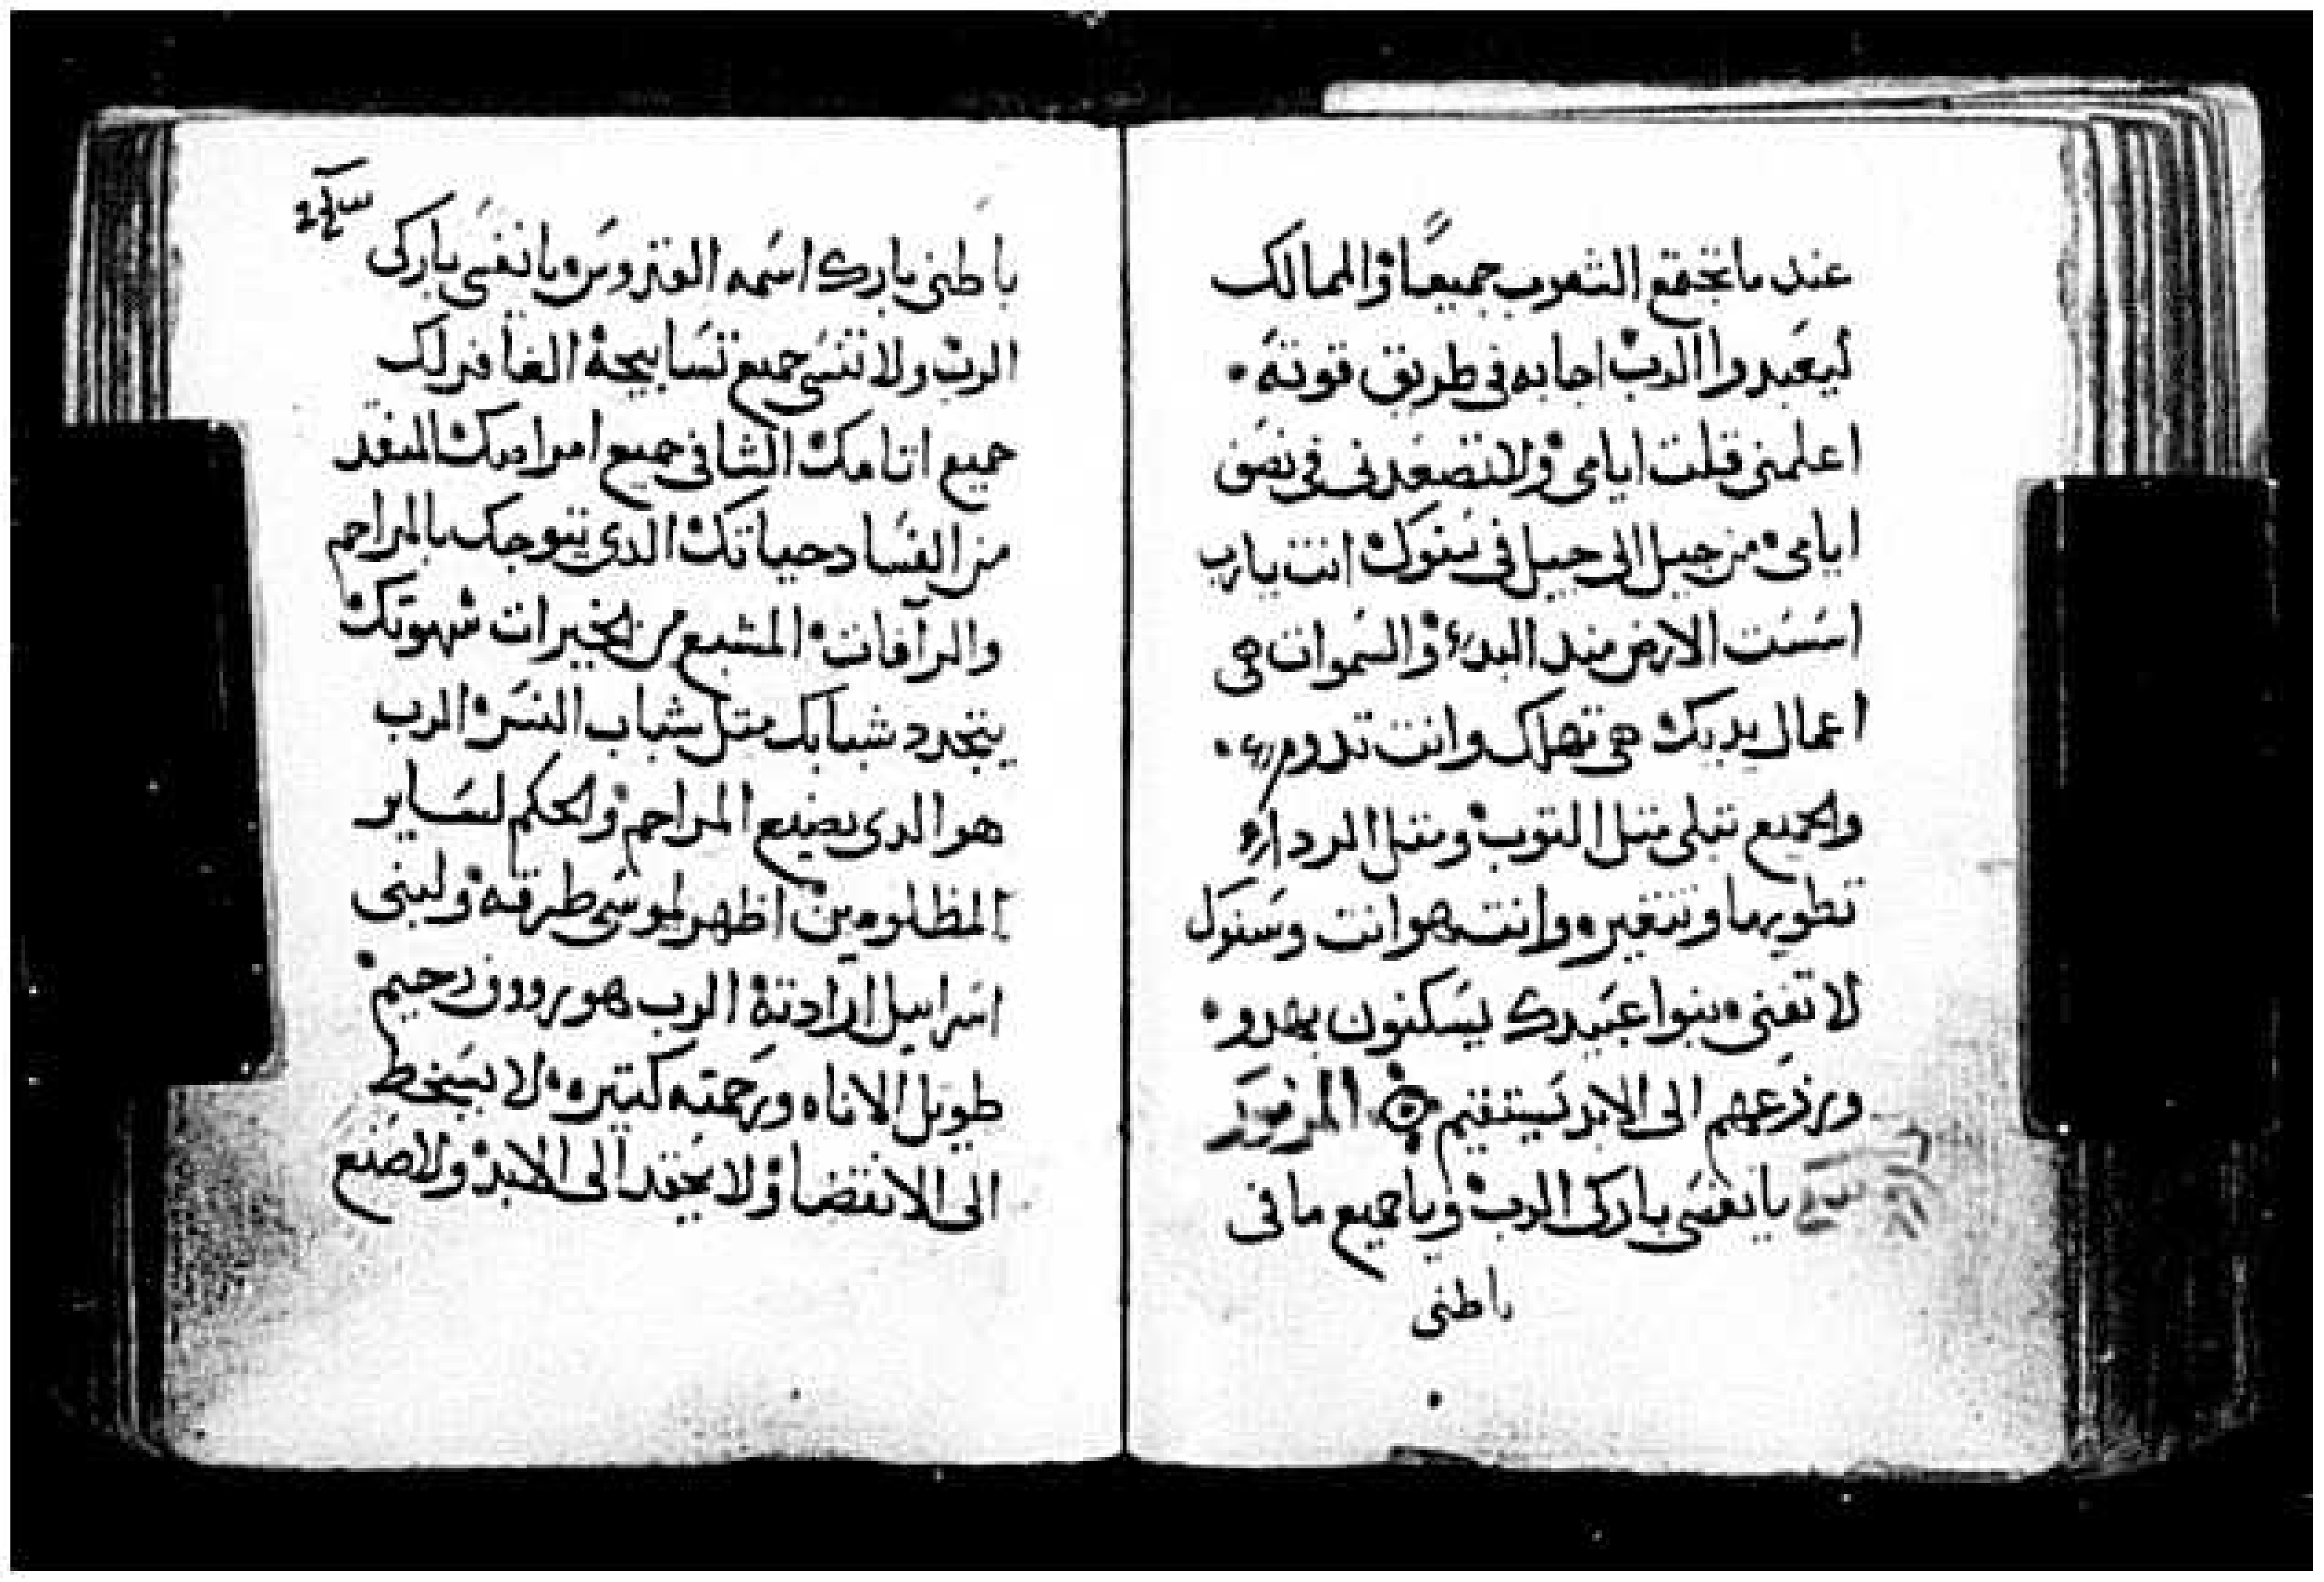 عند ما تجتمع الشعوب جميعاً والممالك
ليعبدوا الرب اجابه في طريق قوته
اعلمني قلت ايامي ولا تصعدني في نصف
ايامي من جيل الى جيل في سنوك انت يارب
اسست الارض مند البدء والسموات هي
اعمال يديك هي تهلك وانت تدوم
والجميع تبلى متل التوب ومتل الرداء
تطويها وتتغير وانت هو انت وسنوك
لا تفنى بنوا عبيدك يسكنون بهدو
وزرعهم الى الابد يستقيم المزمور
يا نفسي باركي الرب ويا جميع ما في
باطني
باطني بارك اسمه القدوس يا نفسي باركي
الرب ولا تنسي جميع تسابيحه الغافر لك
جميع اتامك الشافي جميع امراضك المنقد
من الفساد حياتك الدي يتوجك بالمراحم
والرآفات المشبع من الخيرات شهوتك
يتجدد شبابك متل شباب النسر الرب
هو الدي يصنع المراحم والحكم لساير
المظلومين اظهر لموسى طرقه ولبني
اسراييل ارادته الرب هو رووف رحيم
طويل الاناه ورحمته كتيره لا يسخط
الى الانقضا ولا يحقد الى الابد ولا صنع